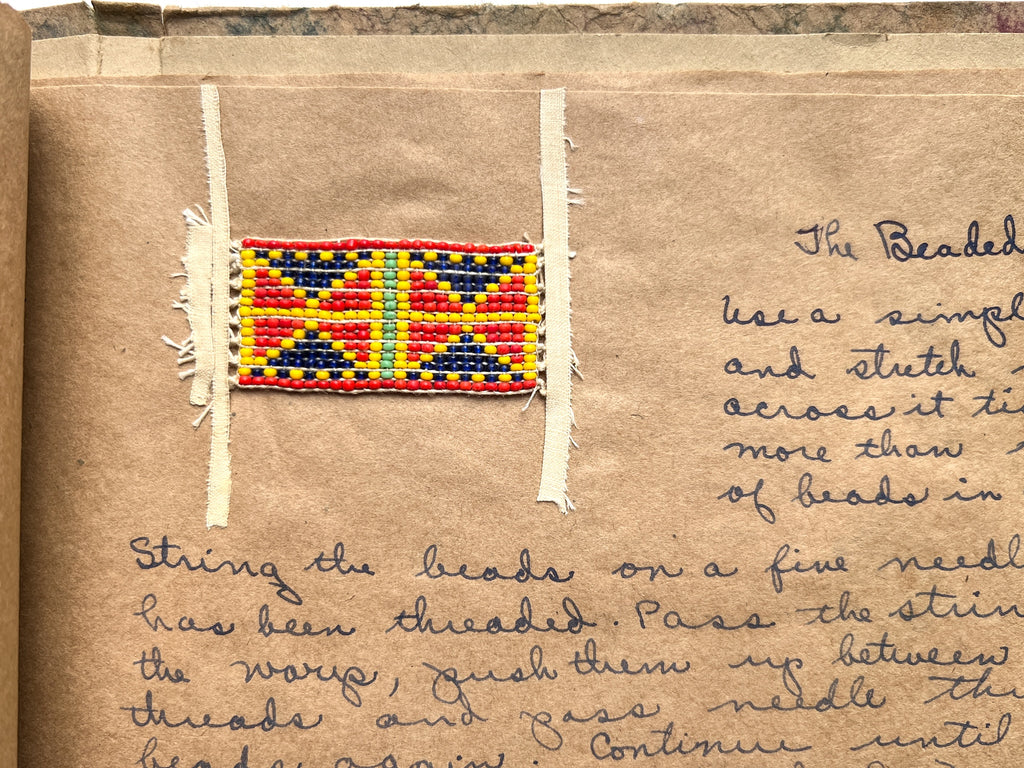 The Beaded
Use a simpl
and stretch
across it ti
more than
of beads in
String the beads on a fine needl
has been threaded. Pass the strin
the warp, push them up between
threads and pass needle thr
beads again. Continue until